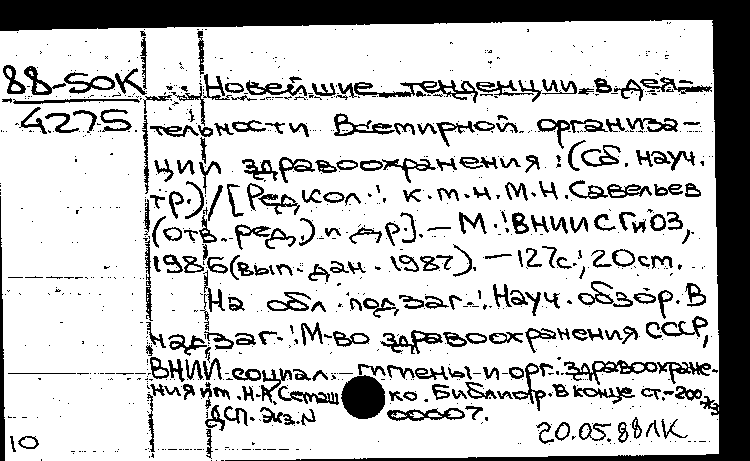 88-50К Новейшие тенденции в дея-
4275 тельности Всемирной организа-
ции здравоохранения : (Сб. науч.
тр.) / [Редкол.: к.м.н. М.Н. Савельев
(отв. ред.) и др.]. - М.: ВНИИСГиОЗ,
1986 (вып. дан. 1987). - 127с.; 20см.
На обл. подзаг.: Науч. обзор. В
надзаг.: М-во здравоохранения СССР,
ВНИИ социал. гигиены и орг. здравоохране-
ния им. Н.А. Семашко. Библиогр. в конце ст. - 200 экз
ДСП. Экз. N 00007.
20.05.88 ЛК
10